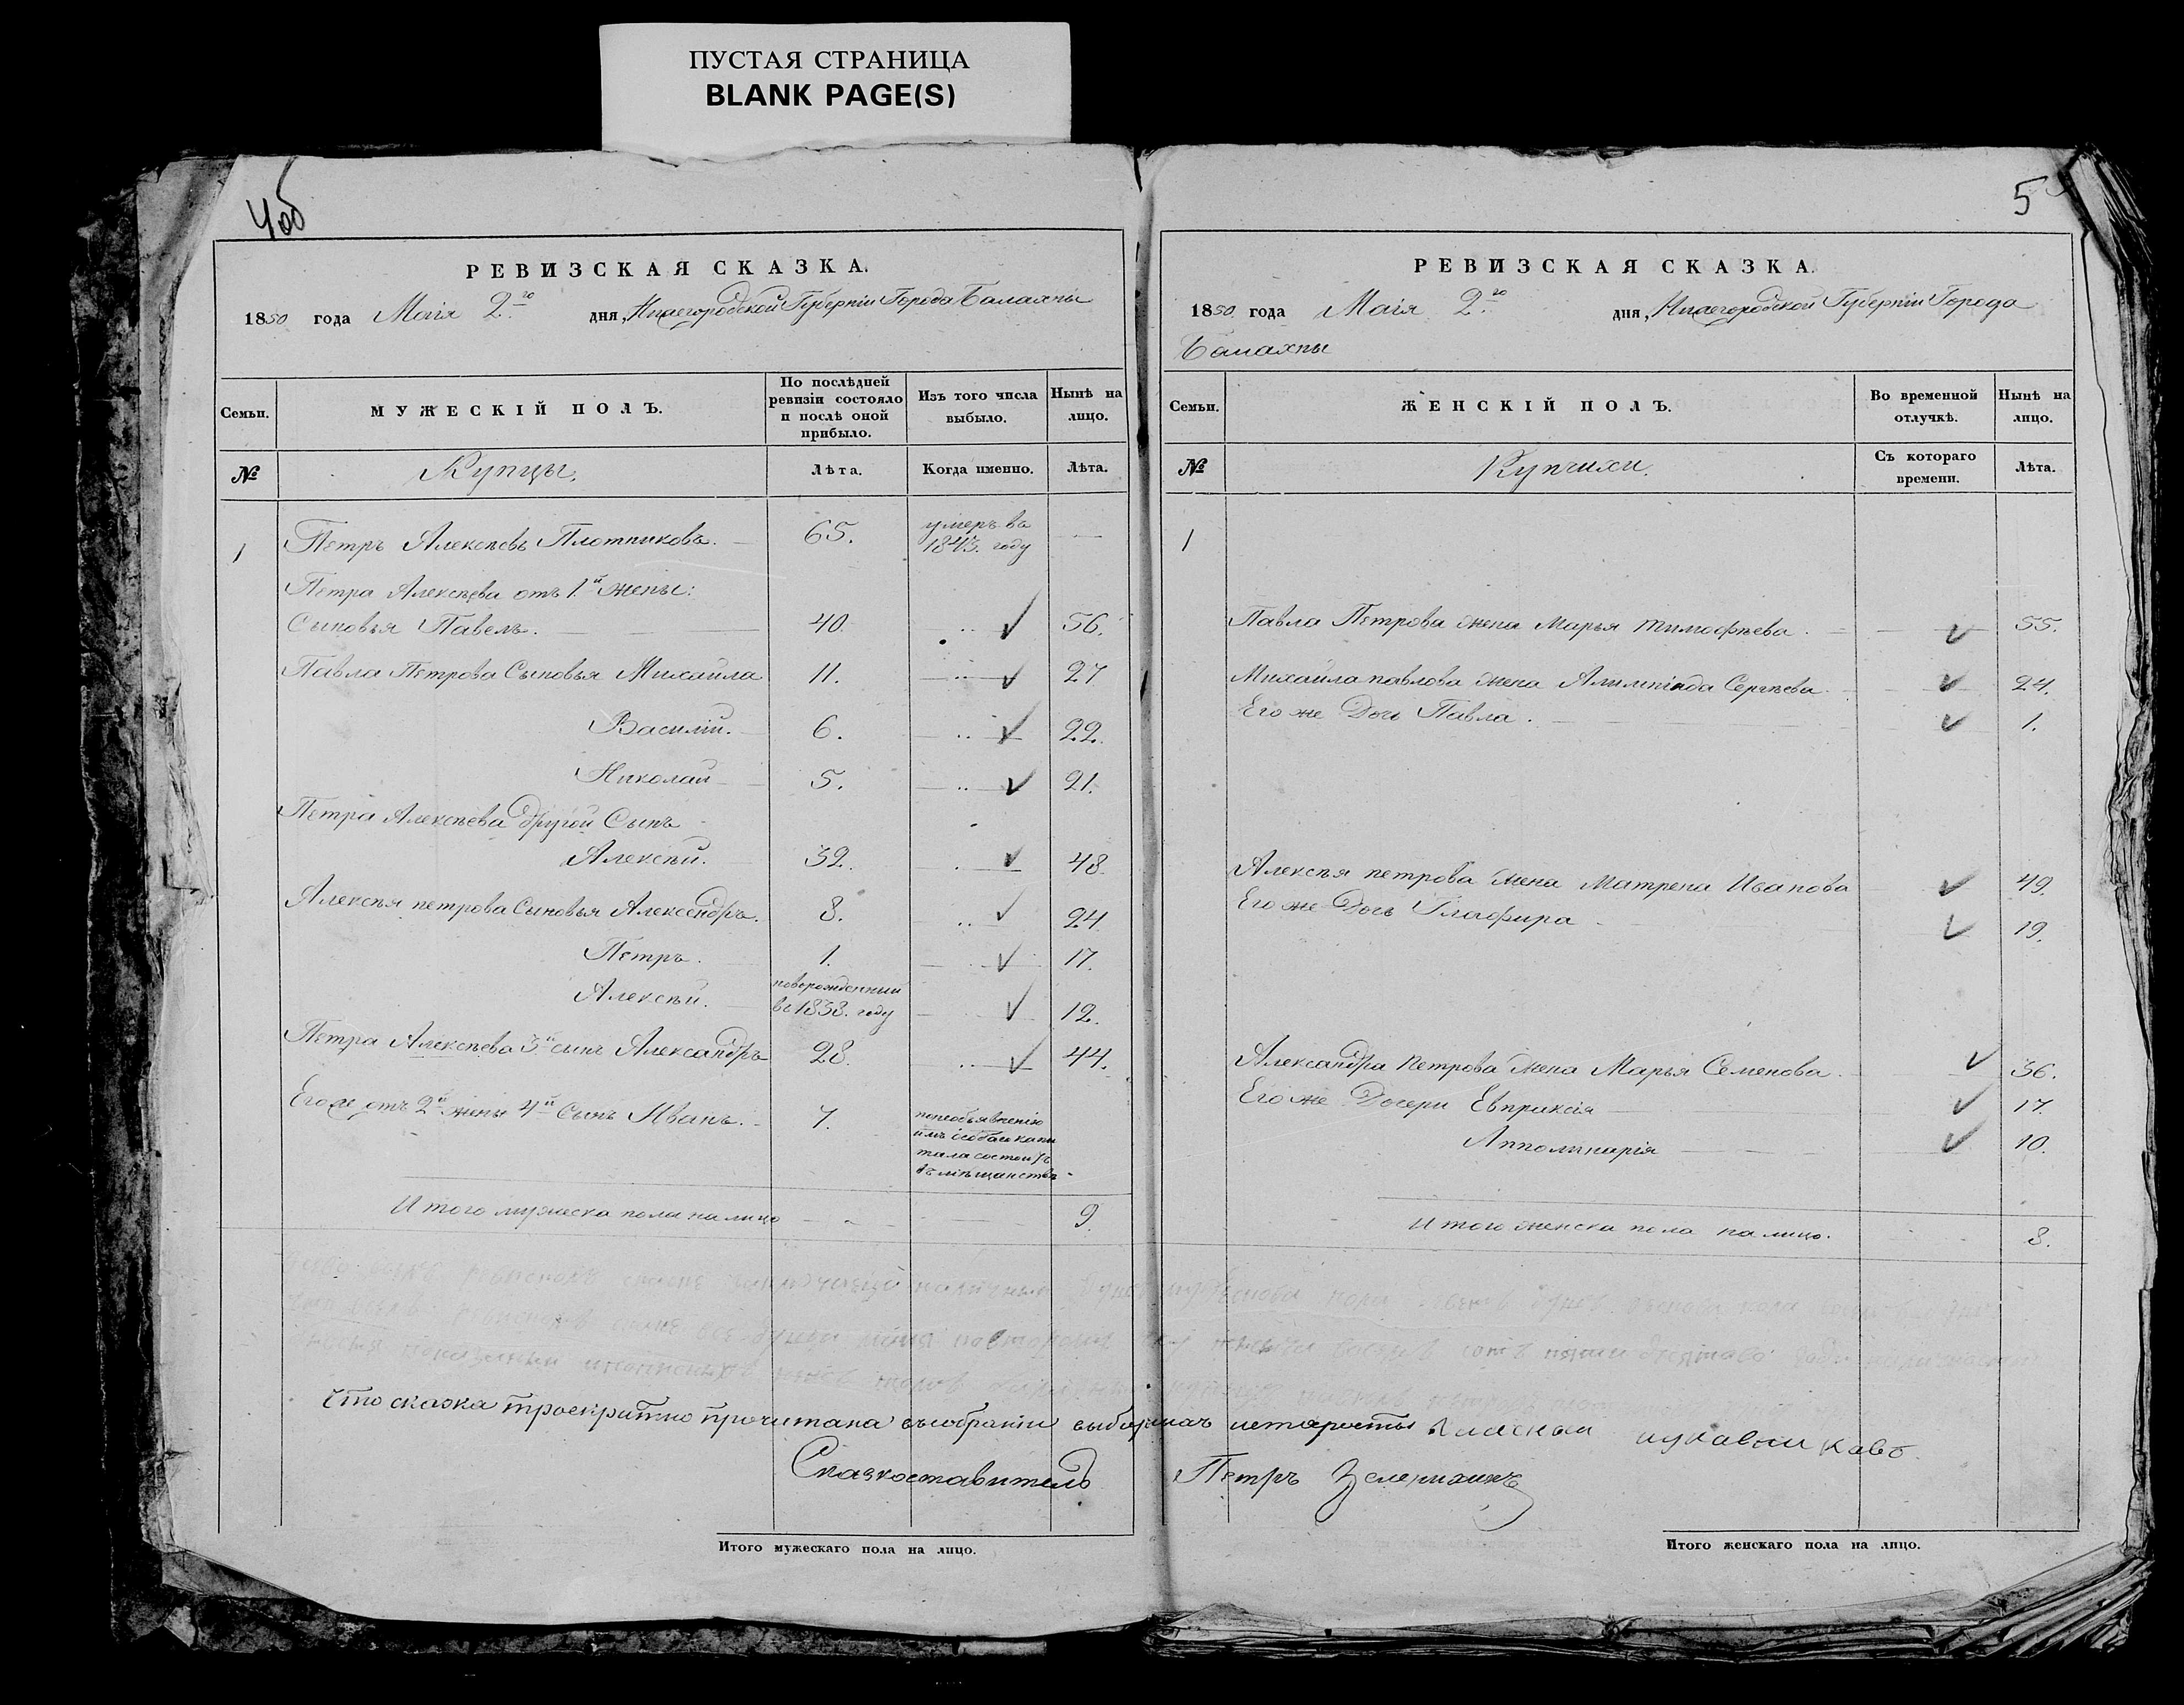 ПУСТАЯ СТРАНИЦА
BLANK PAGE(S)
4об
РЕВИЗСКАЯ СКАЗКА.
1850 года Маія 2го дня, Нижегородской Губерніи Города Балахны
Семьи. МУЖЕСКІЙ ПОЛЪ. По послѣдней ревизіи состояло и послѣ оной прибыло. Изъ того числа выбыло. Нынѣ на лицо.
№ Купцы. Лѣта. Когда именно. Лѣта.
1 Петръ Алексѣевъ Плотниковъ. 65. умеръ въ 1843. году —
Петра Алексѣева отъ 1й жены:
Сыновья Павелъ. 40. 56.
Павла Петрова Сыновья Михайла 11. 27
Василій. 6. 22.
Николай 5. 21.
Петра Алексѣева другой Сынъ
Алексѣй. 32. 48.
Алексѣя петрова Сыновья Александръ. 8. 24.
Петръ. 1. 17.
Алексѣй. новорожденный въ 1838. году 12.
Петра Алексѣева 3й сынъ Александръ 28. 44.
Егоже отъ 2й жены 4й Сынъ Иванъ. 7. понеобъявленію имъ особаго капитала состоитъ въ мѣщанствѣ -
Итого мужеска пола налицо 9.
5
РЕВИЗСКАЯ СКАЗКА.
1850 года Маія 2го дня, Нижегородской Губерніи Города
Балахны
Семьи. ЖЕНСКІЙ ПОЛЪ. Во временной отлучкѣ. Нынѣ на лицо.
№ Купчихи. Съ котораго времени. Лѣта.
1
Павла Петрова жена Марья тимофѣева. 55.
Михайла павлова жена Алимпіяда Сергѣева. 24.
Его же Дочь Павла. 1.
Алексѣя петрова жена Матрена Иванова 49.
Его же Дочь Глафира 19.
Александра Петрова жена Марья Семенова. 36.
Его же Дочери Евпраксія 17.
Апполинарія 10.
Итого женска пола налицо. 8.
Что сказка троекратно прочитана въ собраніи
Сказкоставитель Петръ Зеленихинъ
Итого мужескаго пола на лицо.
Итого женскаго пола на лицо.